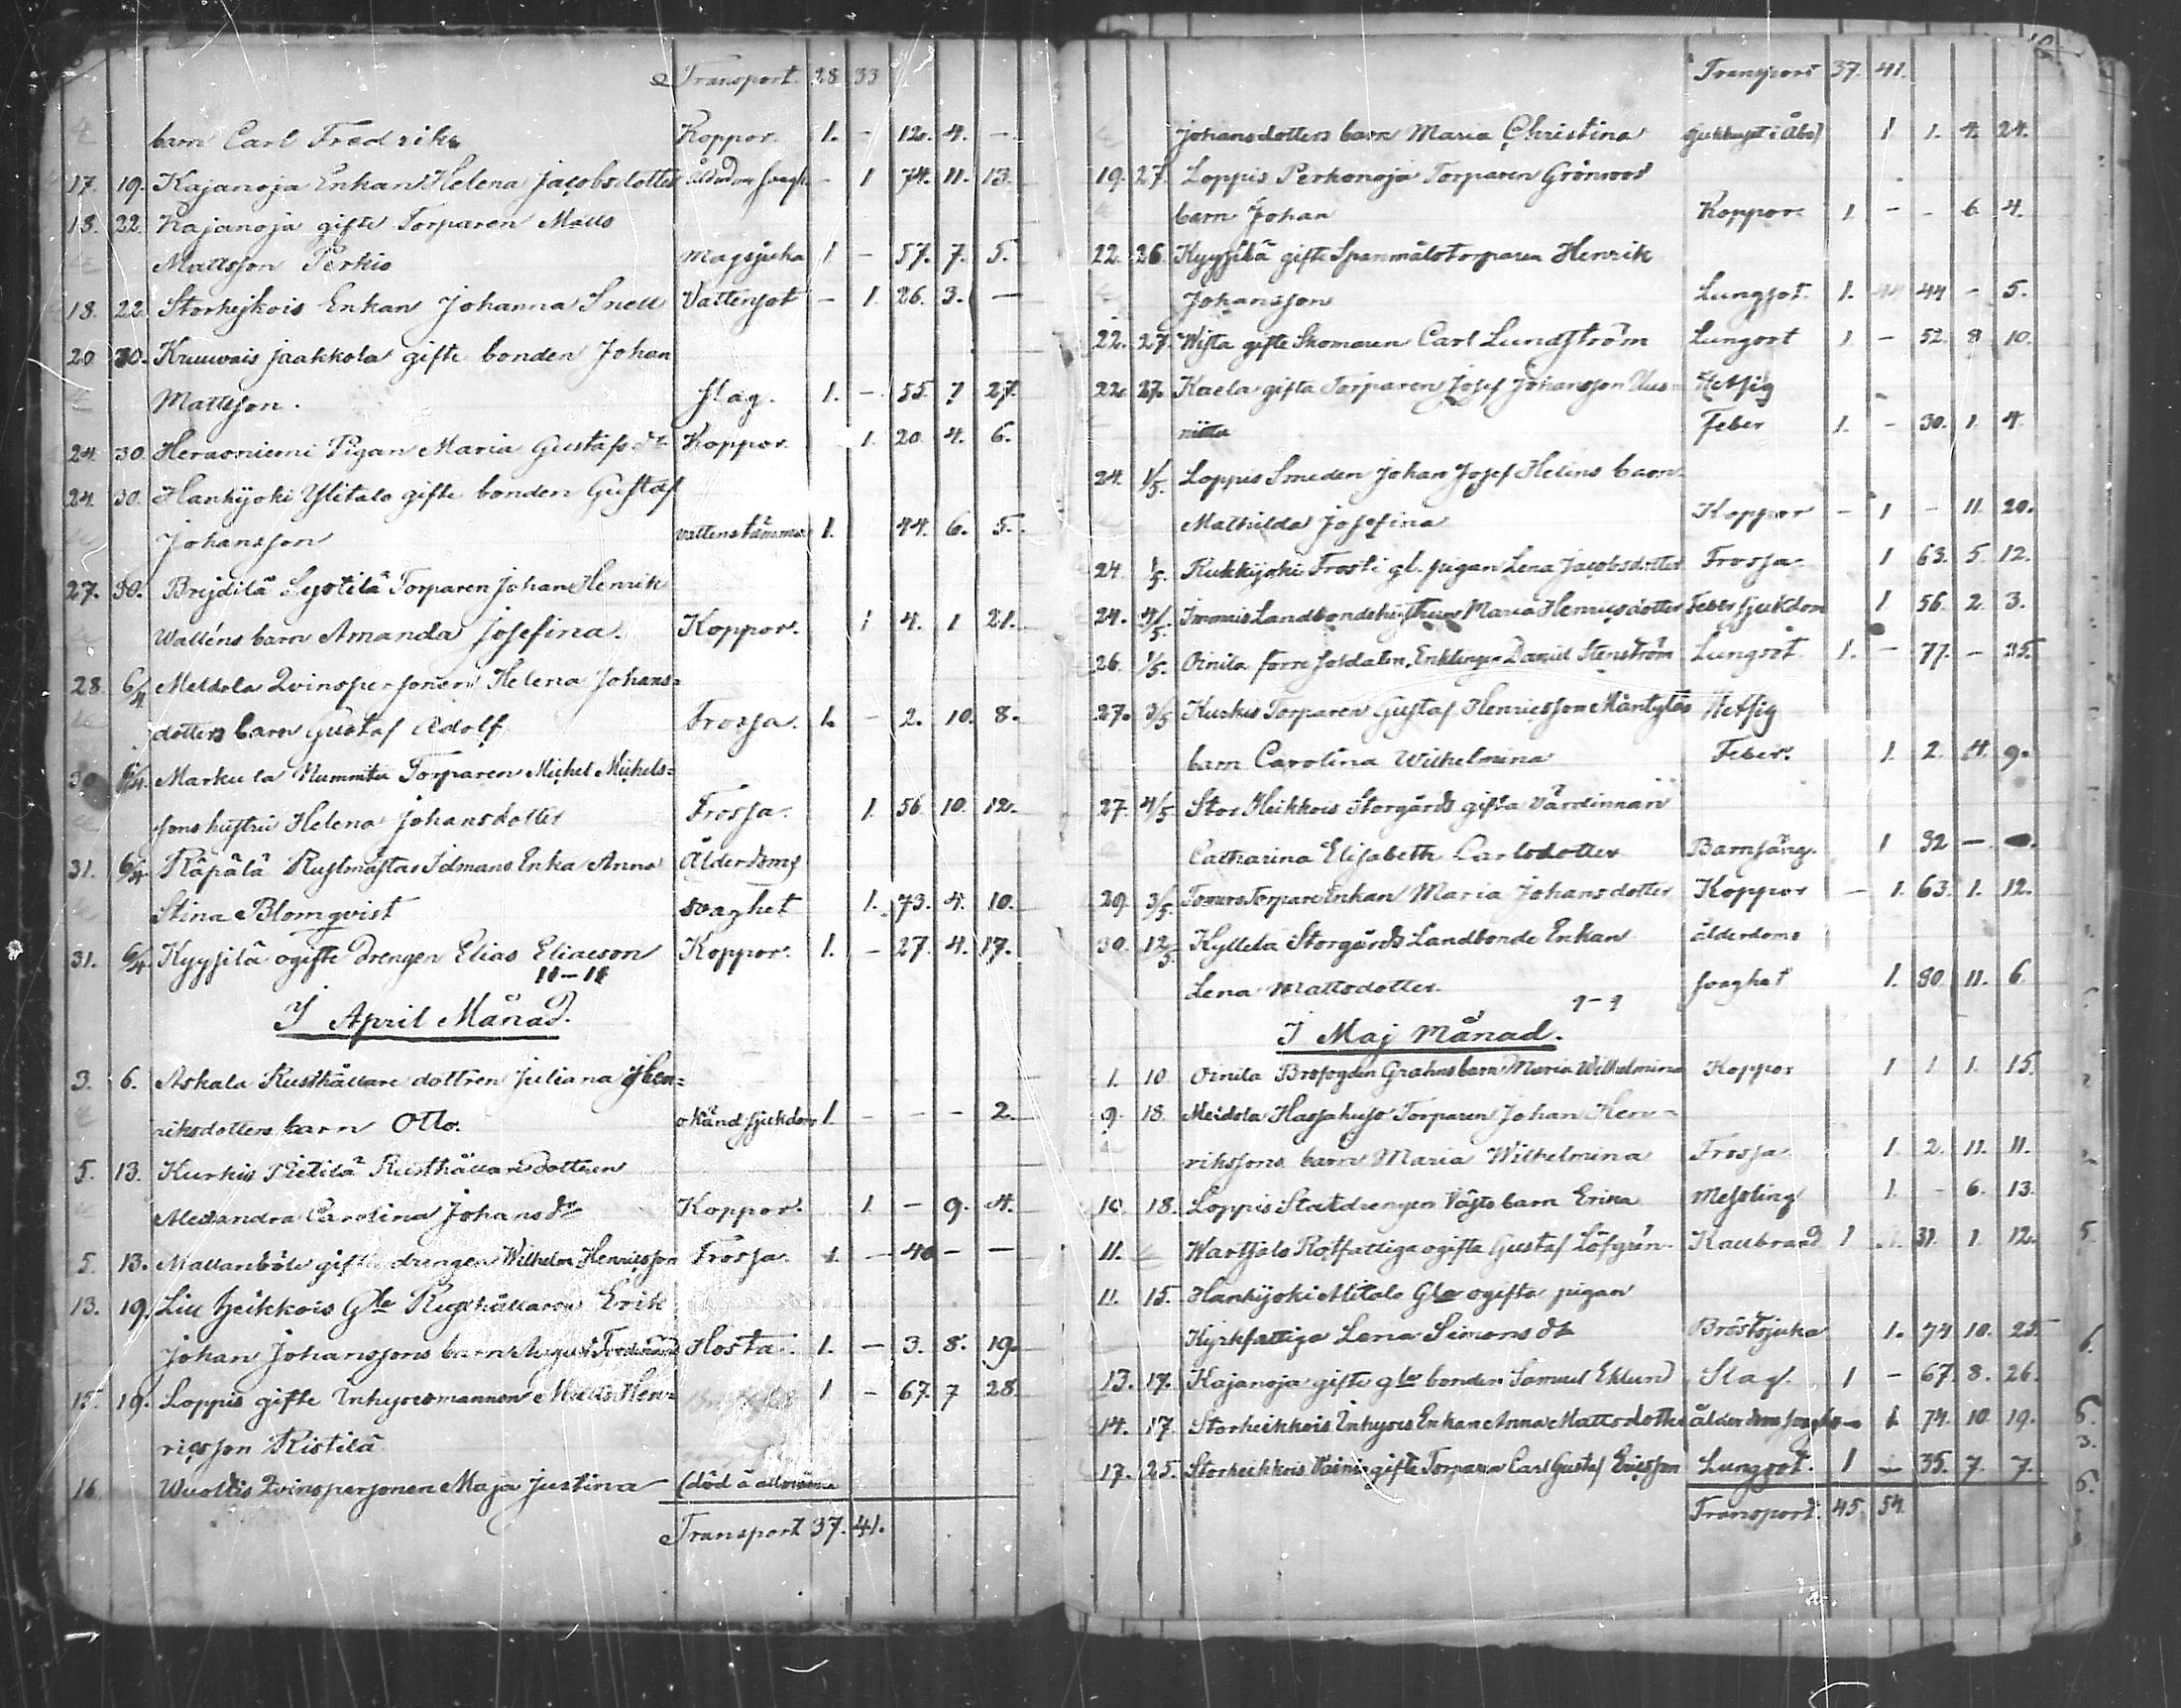 Transport. 28 33
barn Carl Fredrik Koppor. 1. - 12. 4. -
17. 19. Kajanoja Enkan Helena Jacobsdotter - 1 74. 11. 13.
18. 22. Kajanoja gifte Torparen Matts
Mattsson Perkio magsjuka 1 - 57. 7. 5.
18. 22. Enkan Johanna Snell Vattensot - 1. 26. 3. -
20. 30. jaakkola gifte bonden Johan
Mattsson. slag. 1. - 55. 7 27.
24. 30. Heraoniemi Pigan Maria Gustafsdr Koppor. 1. 20 4. 6.
24. 30. Hankijoki Ylitalo gifte bonden Gustaf
Johansson 1. 44. 6. 5.
27. 30. Torparen Johan Henrik
Walléns barn Amanda Josefina. Koppor. 1 4. 1 21.
28. 6/4 Meldola Qvinspersonen Helena Johans=
dotters barn Gustaf Adolf Trossja. 1. - 2. 10. 8.
30 6/4. Markula Nummitu Torparen Michel Michels=
sons hustru Helena Johansdotter Trossja. 1. 56. 10. 12.
31. 6/4. Räpälä Idmans Enka Anna Ålderdoms
Stina Blomqvist svaghet 1. 73. 4. 10.
31. 6/4. Kyysilä ogifte Drengen Elias Eliasson Koppor. 1. - 27. 4. 17.
11-11
I April Månad.
3. 6. Askala Rusthållare dottren Juliana Hen=
riksdotters barn Otto. okänd sjukdom 1. - - - 2.
5. 13. Kurkis Pietilä Rusthållaredottren
Alexandra Carolina Johansdr Koppor. 1 - 9. 4.
5. 13. gifte drengen Wilhelm Henricsson Trossja. 1. - 40 - -
13. 19. Liu heikkois Gle Rusthållaren Erik
Johan Johanssons barn August Ferdinand Hosta. 1. - 3. 8. 19.
15. 19. Loppis gifte Inhyresmannen Matts Hen=
1 - 67. 7 28
ricsson Ristilä
16. Qvinspersonen Maja Justina (död å
Transport 37. 41.
Transport 37. 41.
Johansdotters barn Maria Christina sjukhuset i Åbo) 1 1. 4. 24.
19. 27. Loppis Perkonoja Torparen Grönroos
barn Johan Koppor. 1. - - 6. 4.
22. 26. Kyysilä gifte Spanmålstorparen Henrik
Johansson Lungsot. 1. 44 - 5.
22. 27. Wista gifte Skomaren Carl Lundström Lungsot 1 - 52. 8 10.
22. 27. Kaela gifte Torparen Josef Johansson Uus= Hetsig
niitta Feber 1. - 30. 1. 4.
24. 1/5. Loppis Smeden Johan Josef Helins barn
Mathilda Josefina Koppor - 1 - 11. 20.
24. 1/5. Rukkijoki Trosti gl. pigan Lena Jacobsdotter Trossja. 1 63. 5. 12.
24. 4/5. Immis Landbondehustrun Maria Henricsdotter Feber sjukdom 1 56. 2. 3.
26. 1/5. Oinila forre soldaten, Enklingen Daniel Stenström Lungsot 1. - 77. - 25.
27. 3/5 Kuskis Torparen Gustaf Henricsson Mäntyläs Hetsig
barn Carolina Wilhelmina Feber. 1. 2. 4. 9.
27. 4/5 Stor Heikkois Storgårds gifta värdinnan
Catharina Elisabeth Carlsdotter Barnsäng. 1 32 -
29. 3/5. Torpare Enkan Maria Johansdotter Koppor - 1. 63. 1. 12.
30. 12/5. Kyllelä Storgårds Landbonde Enkan ålderdoms
Lena Mattsdotter. svaghet 1. 80. 11. 6.
9-9
I Maj Månad.
1. 10 Oinila Brofogden Grahns barn Maria Wilhelmina Koppor 1 1 1. 15.
9. 18. Meldola Torparen Johan Hen=
rikssons barn Maria Wilhelmina Trossja 1. 2. 11. 11.
10 18. Loppis Statdrengen barn Erika Messling 1. - 6. 13.
11. Wartsala Rotfattiga ogifta Gustaf Löfgrén Kallbrand 1 31. 1. 12.
11. 15. Hankijoki Alitalo Gla ogifta pigan
Kyrkfattiga Lena Simonsdr Bröstsjuka 1. 74 10. 25.
13. 17. Kajanoja gifte gle bonden Samuel Eklund Slag. 1 - 67. 8. 26.
14. 17. Storheikkois Inhyses Enkan Anna Mattsdotter 1. 74. 10. 19.
17. 25. Storheikkois Vainio gifte Torparen Carl Gustaf Ericsson Lungsot. 1 - 35. 7. 7.
Transport. 45. 54.